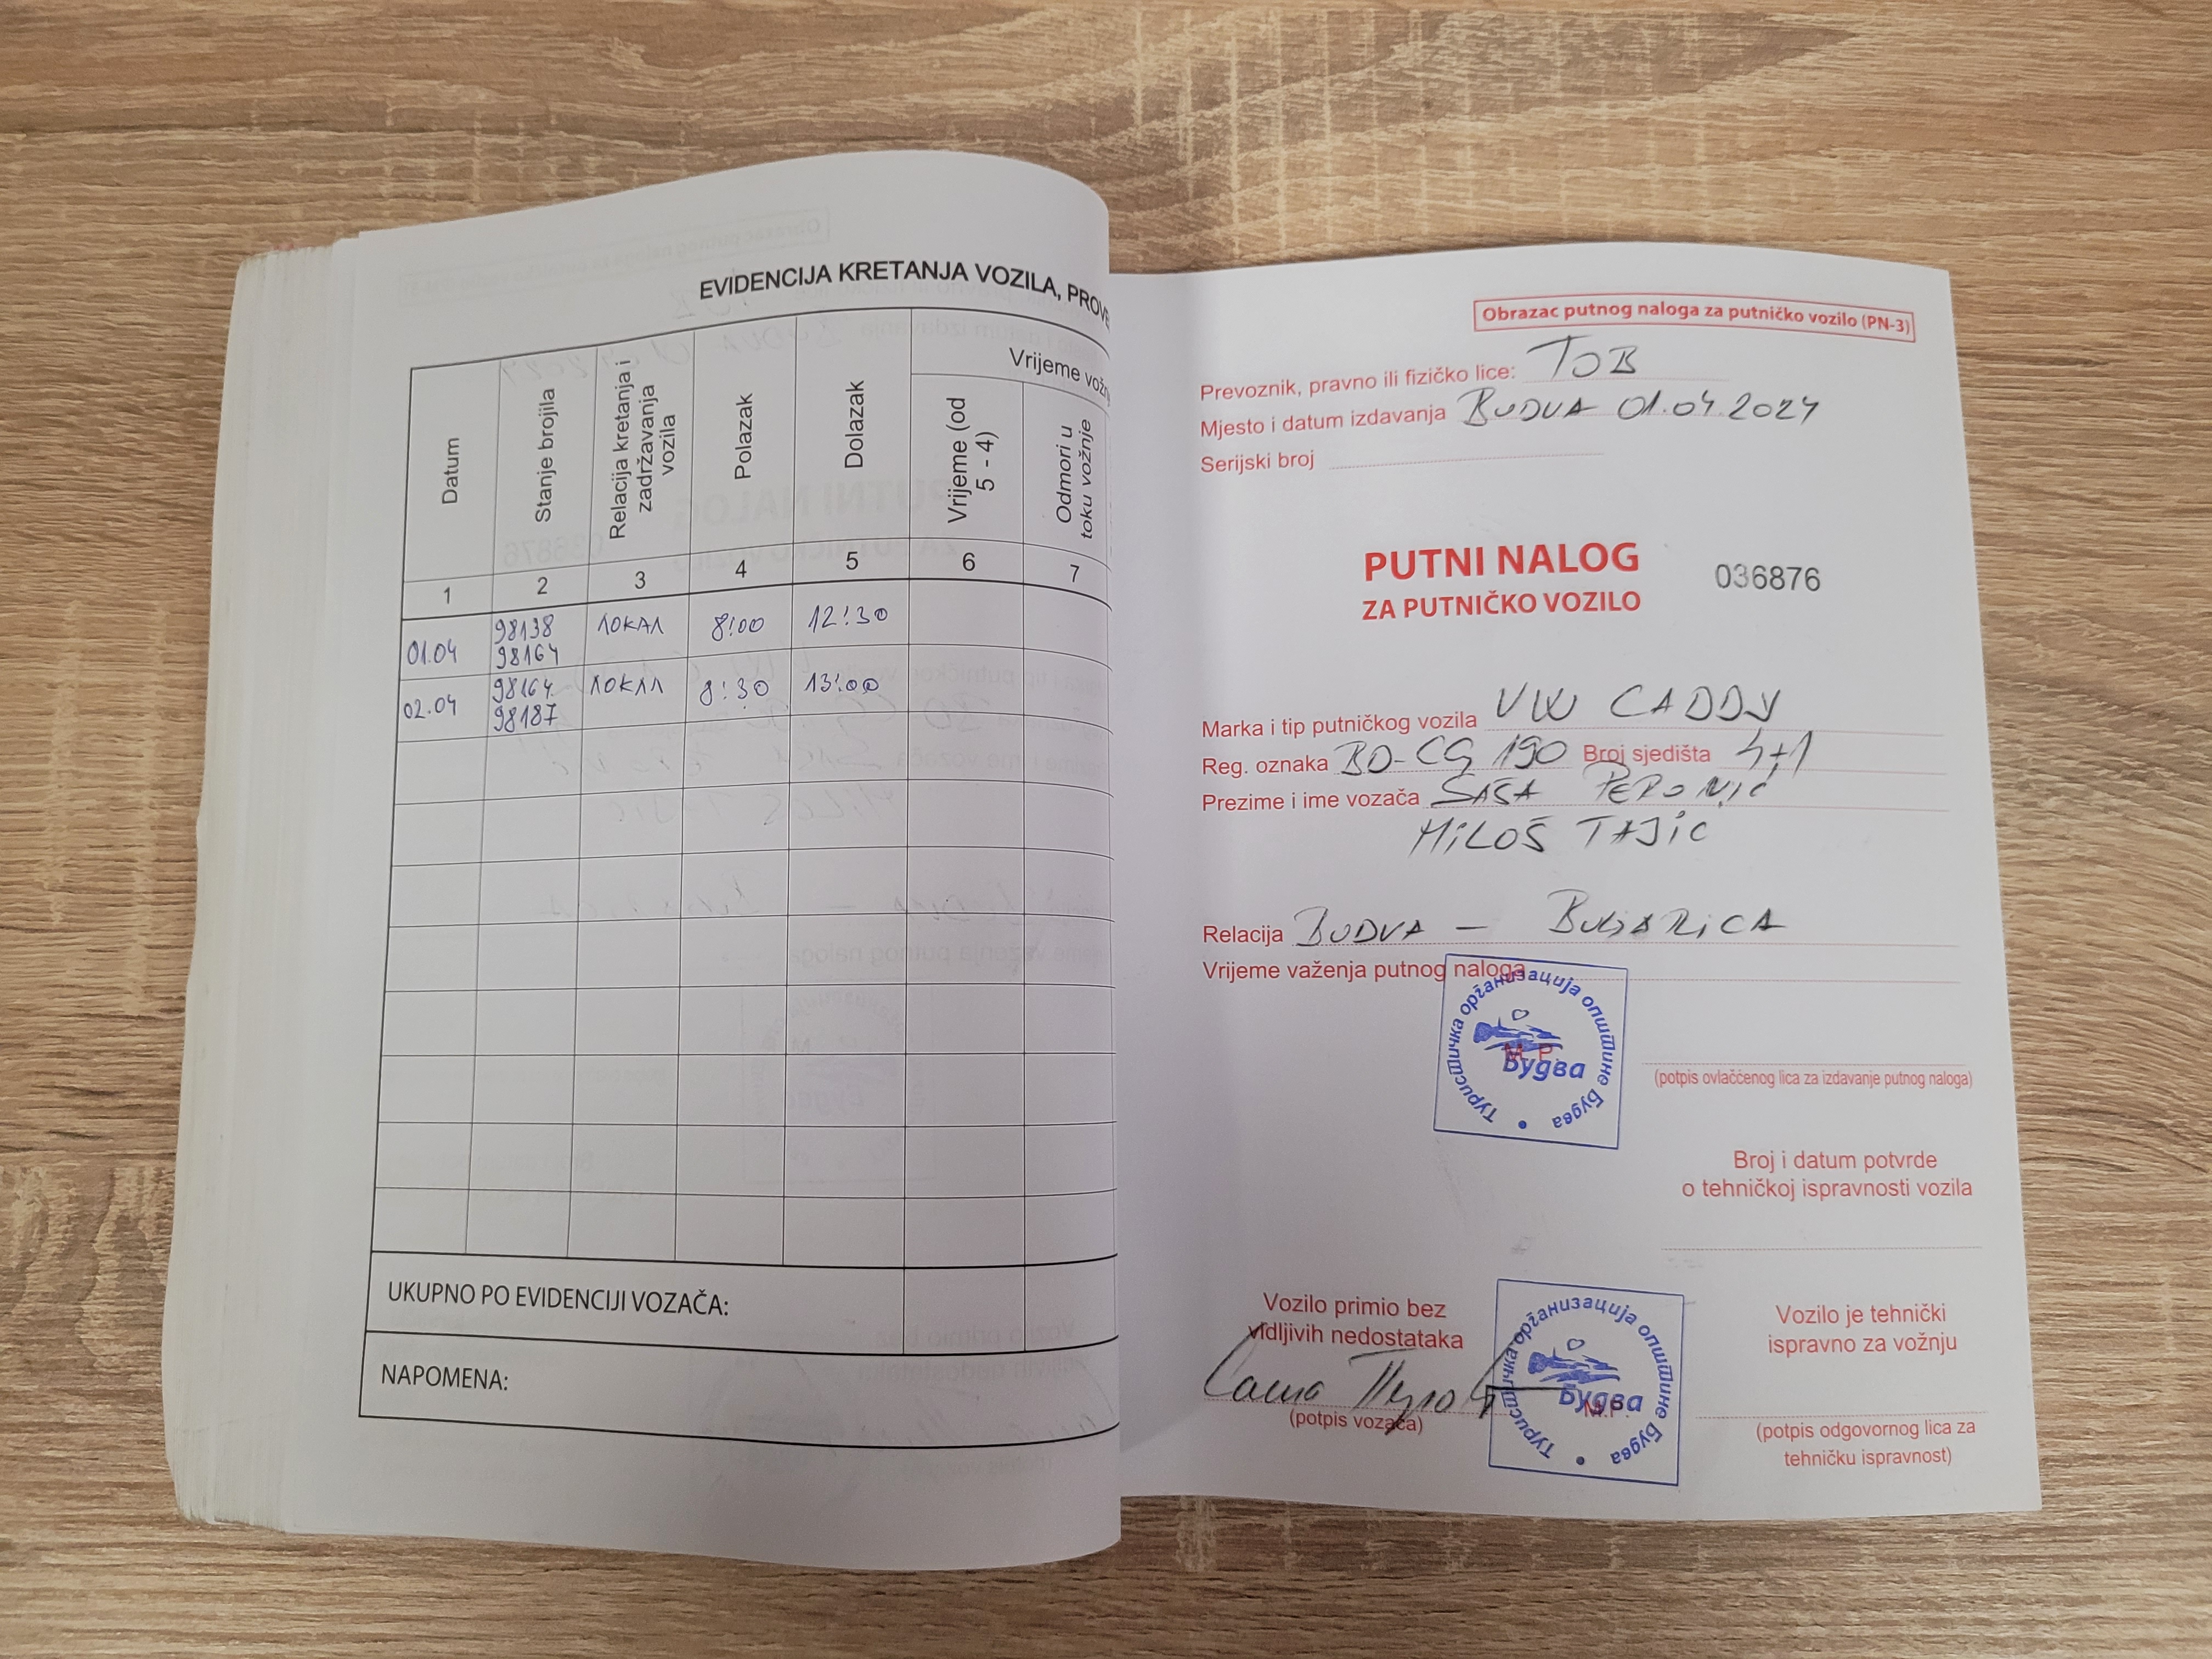 EVIDENCIJA KRETANJA VOZILA, PROVE
Datum
Stanje brojila
Relacija kretanja i zadržavanja vozila
Polazak
Dolazak
Vrijeme vožn
Vrijeme (od 5 - 4)
Odmori u toku vožnje
1 2 3 4 5 6 7
01.04 98138 98164 ЛОКАЛ 8:00 12:30
02.04 98164 98187 ЛОКАЛ 8:30 13:00
UKUPNO PO EVIDENCIJI VOZAČA:
NAPOMENA:
Obrazac putnog naloga za putničko vozilo (PN-3)
Prevoznik, pravno ili fizičko lice: TOB
Mjesto i datum izdavanja BUDVA 01.04.2024
Serijski broj
PUTNI NALOG
ZA PUTNIČKO VOZILO
036876
Marka i tip putničkog vozila VW CADDY
Reg. oznaka BD-CG 190 Broj sjedišta 4+1
Prezime i ime vozača SAŠA
MILOŠ TAJIC
Relacija BUDVA - BULJARICA
Vrijeme važenja putnog naloga
Туристичка организација општине Будва
Будва
M.P.
(potpis ovlaščenog lica za izdavanje putnog naloga)
Broj i datum potvrde
o tehničkoj ispravnosti vozila
Vozilo primio bez
vidljivih nedostataka
Саша
(potpis vozača)
Туристичка организација општине Будва
Будва
M.P.
Vozilo je tehnički
ispravno za vožnju
(potpis odgovornog lica za
tehničku ispravnost)